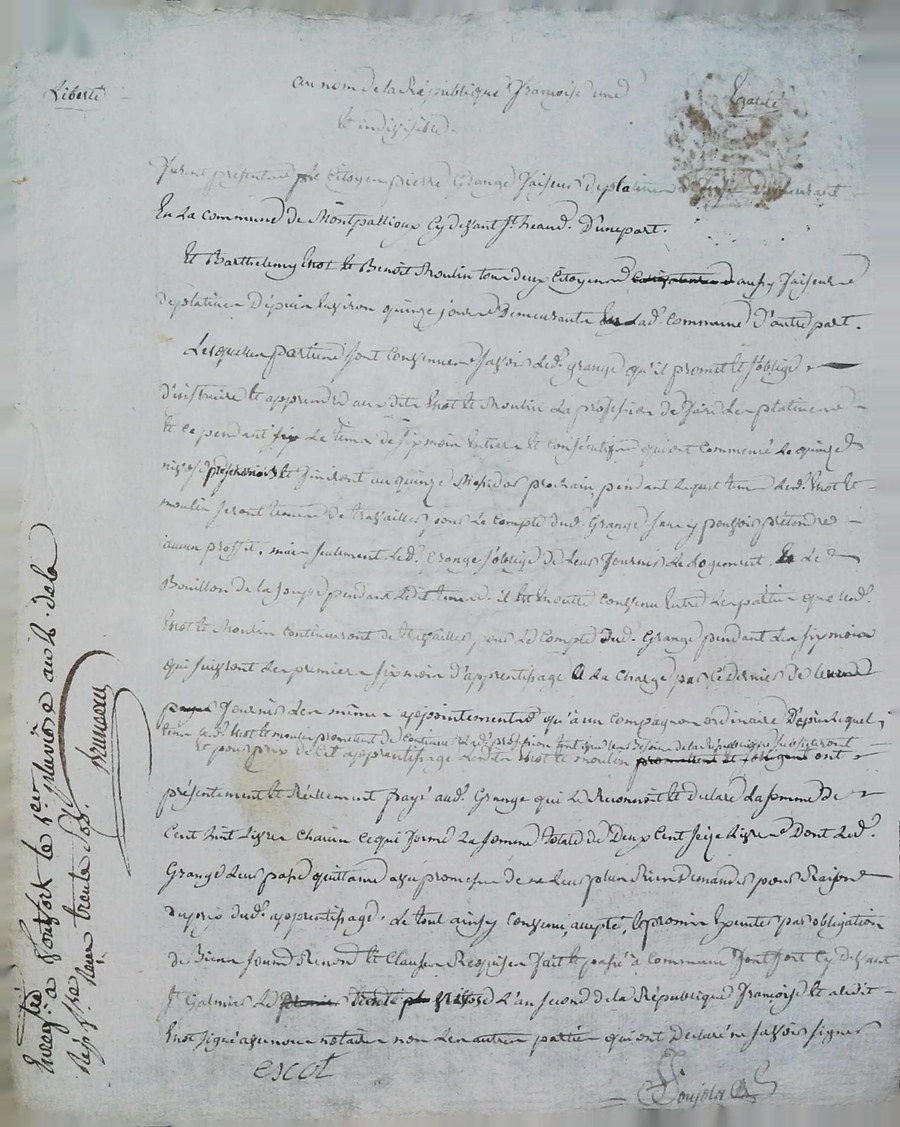 Liberté
Egalité
au nom de la République françoise une
et indivisible.
furent présents le Citoyen pierre Grange faiseur de platines demeurant
En la commune de Montpallioux Cy devant St heand. D'une part.
Et Barthelemy Escot et Benoit Moulin tous deux Citoyens aussy faiseurs
de platines Depuis Environ quinze jours Demeurants lad. commune D'autre part.
Lesquelles parties sont convenues savoir Led. grange qu'il promet et s'oblige
D'instruire et apprendre au dits Escot et Moulin La profession de faire Les platines
Et ce pendant Le tems de six mois Entiers et consécutifs qui ont commencé Le quinze
nivose et finiront au quinze Messidor prochain, pendant Lequel tems Lesd. Escot et
moulin seront tenus de travailler pour Le Compte dud. Grange sans y pouvoir prétendre
aucun proffit. mais seulement Led. Grange s'oblige de Leur fournir Le Logement. Le
Bouillon de la soupe pendant Ledit tems. il Est Encore convenu Entre Les parties que Lesd.
Escot et Moulin Continueront de travailler pour Le Compte dud. Grange pendant Les six mois
qui suivront Les premiers six mois D'apprentissage a La Charge par Ce Dernier de leur
fournir Les mêmes appointements qu'à un compagnon ordinaire Depuis Lequel
tems lesd. Escot et moulin promettent de continuer lad. profession tant que les besoins de la République subsisteront
Et pour prix de Cet apprentissage Lesdits Escot et moulin promettent et s'obligent ont
présentement et Réellement payé aud. Grange qui Le Reconnoit et declare La somme de
Cent huit Livres Chacun Ce qui forme La somme totale de Deux Cent seize Livres Dont Led.
Grange Leur passe quittance avec promesse de ne Leur plus Rien Demander pour Raison
du prix dud. apprentissage. Le tout ainsy convenu, accepté, et promis Executer par obligation
de Biens soumis Renonc. et Clauses Requises fait et passé à Commune fontfort Cy devant
St Galmier Le trente nivose L'an second de la République françoise et a ledit
Escot signé avec nous notaire non Les autres parties qui ont Declaré ne savoir signer
escot
Enregtré à fontfort le 1er pluviôse an 2. de la
Rép. fse Reçu trente sols.